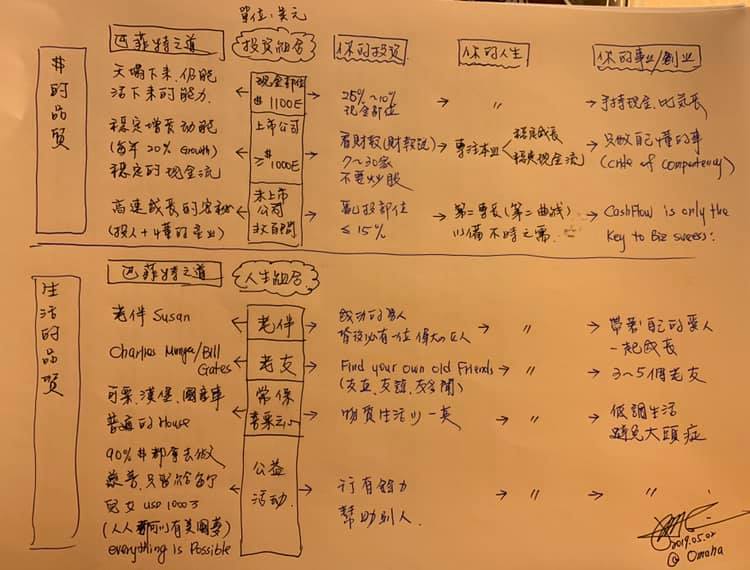 單位:美元
巴菲特之道 投资組合 你的投资 你的人生 你的事业/創业
$的品質
天塌下来,仍能
活下来的能力
现金部位
$1100E
25%~10%
现金部位
〃
手持现金,比氣長
穩定增長动能
(每年20% Growth)
穩定的现金流
上市公司
≥$1000E
看財報(財報說)
7~30家
不要炒股
專注本业
穩定成長
穩定现金流
只做自己懂的事
(circle of competency)
高速成長的
(投人+4懂的產业)
未上市
公司
数百間
亂投部位
≤15%
第二專長(第二曲线)
以備不時之需
CashFlow is only the
Key to Biz success!
生活的品質
巴菲特之道 人生組合
老伴 Susan
老伴
成功的男人
背後必有一位偉大的女人
〃
帶著自己的愛人
一起成長
Charlies Munger/Bill
Gates
老友
Find your own old Friends
(友直,友諒,友多聞)
〃
3~5個老友
可樂,漢堡,國產車
普通的House
常保
物質生活以一英
〃
低調生活
避免大頭症
90%$都拿去做
慈善,只留給
兒女 USD 1000万
(人人都可以有美國夢)
everything is Possible
公益
活动
行有餘力
幫助別人.
〃
〃
2019.05.02
@ Omaha